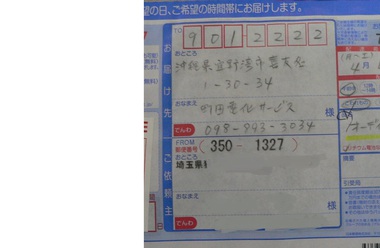 望の日、ご希望の時間帯にお届けします。
TO 901 2222
お届け先
おところ
沖縄県宜野湾市喜友名
1-30-34
おなまえ
町田電化サービス
様
でんわ 098-893-3034
FROM
郵便番号 ( 350 - 1327 )
ご依頼主
おところ
埼玉県
おなまえ
様
でんわ
4月